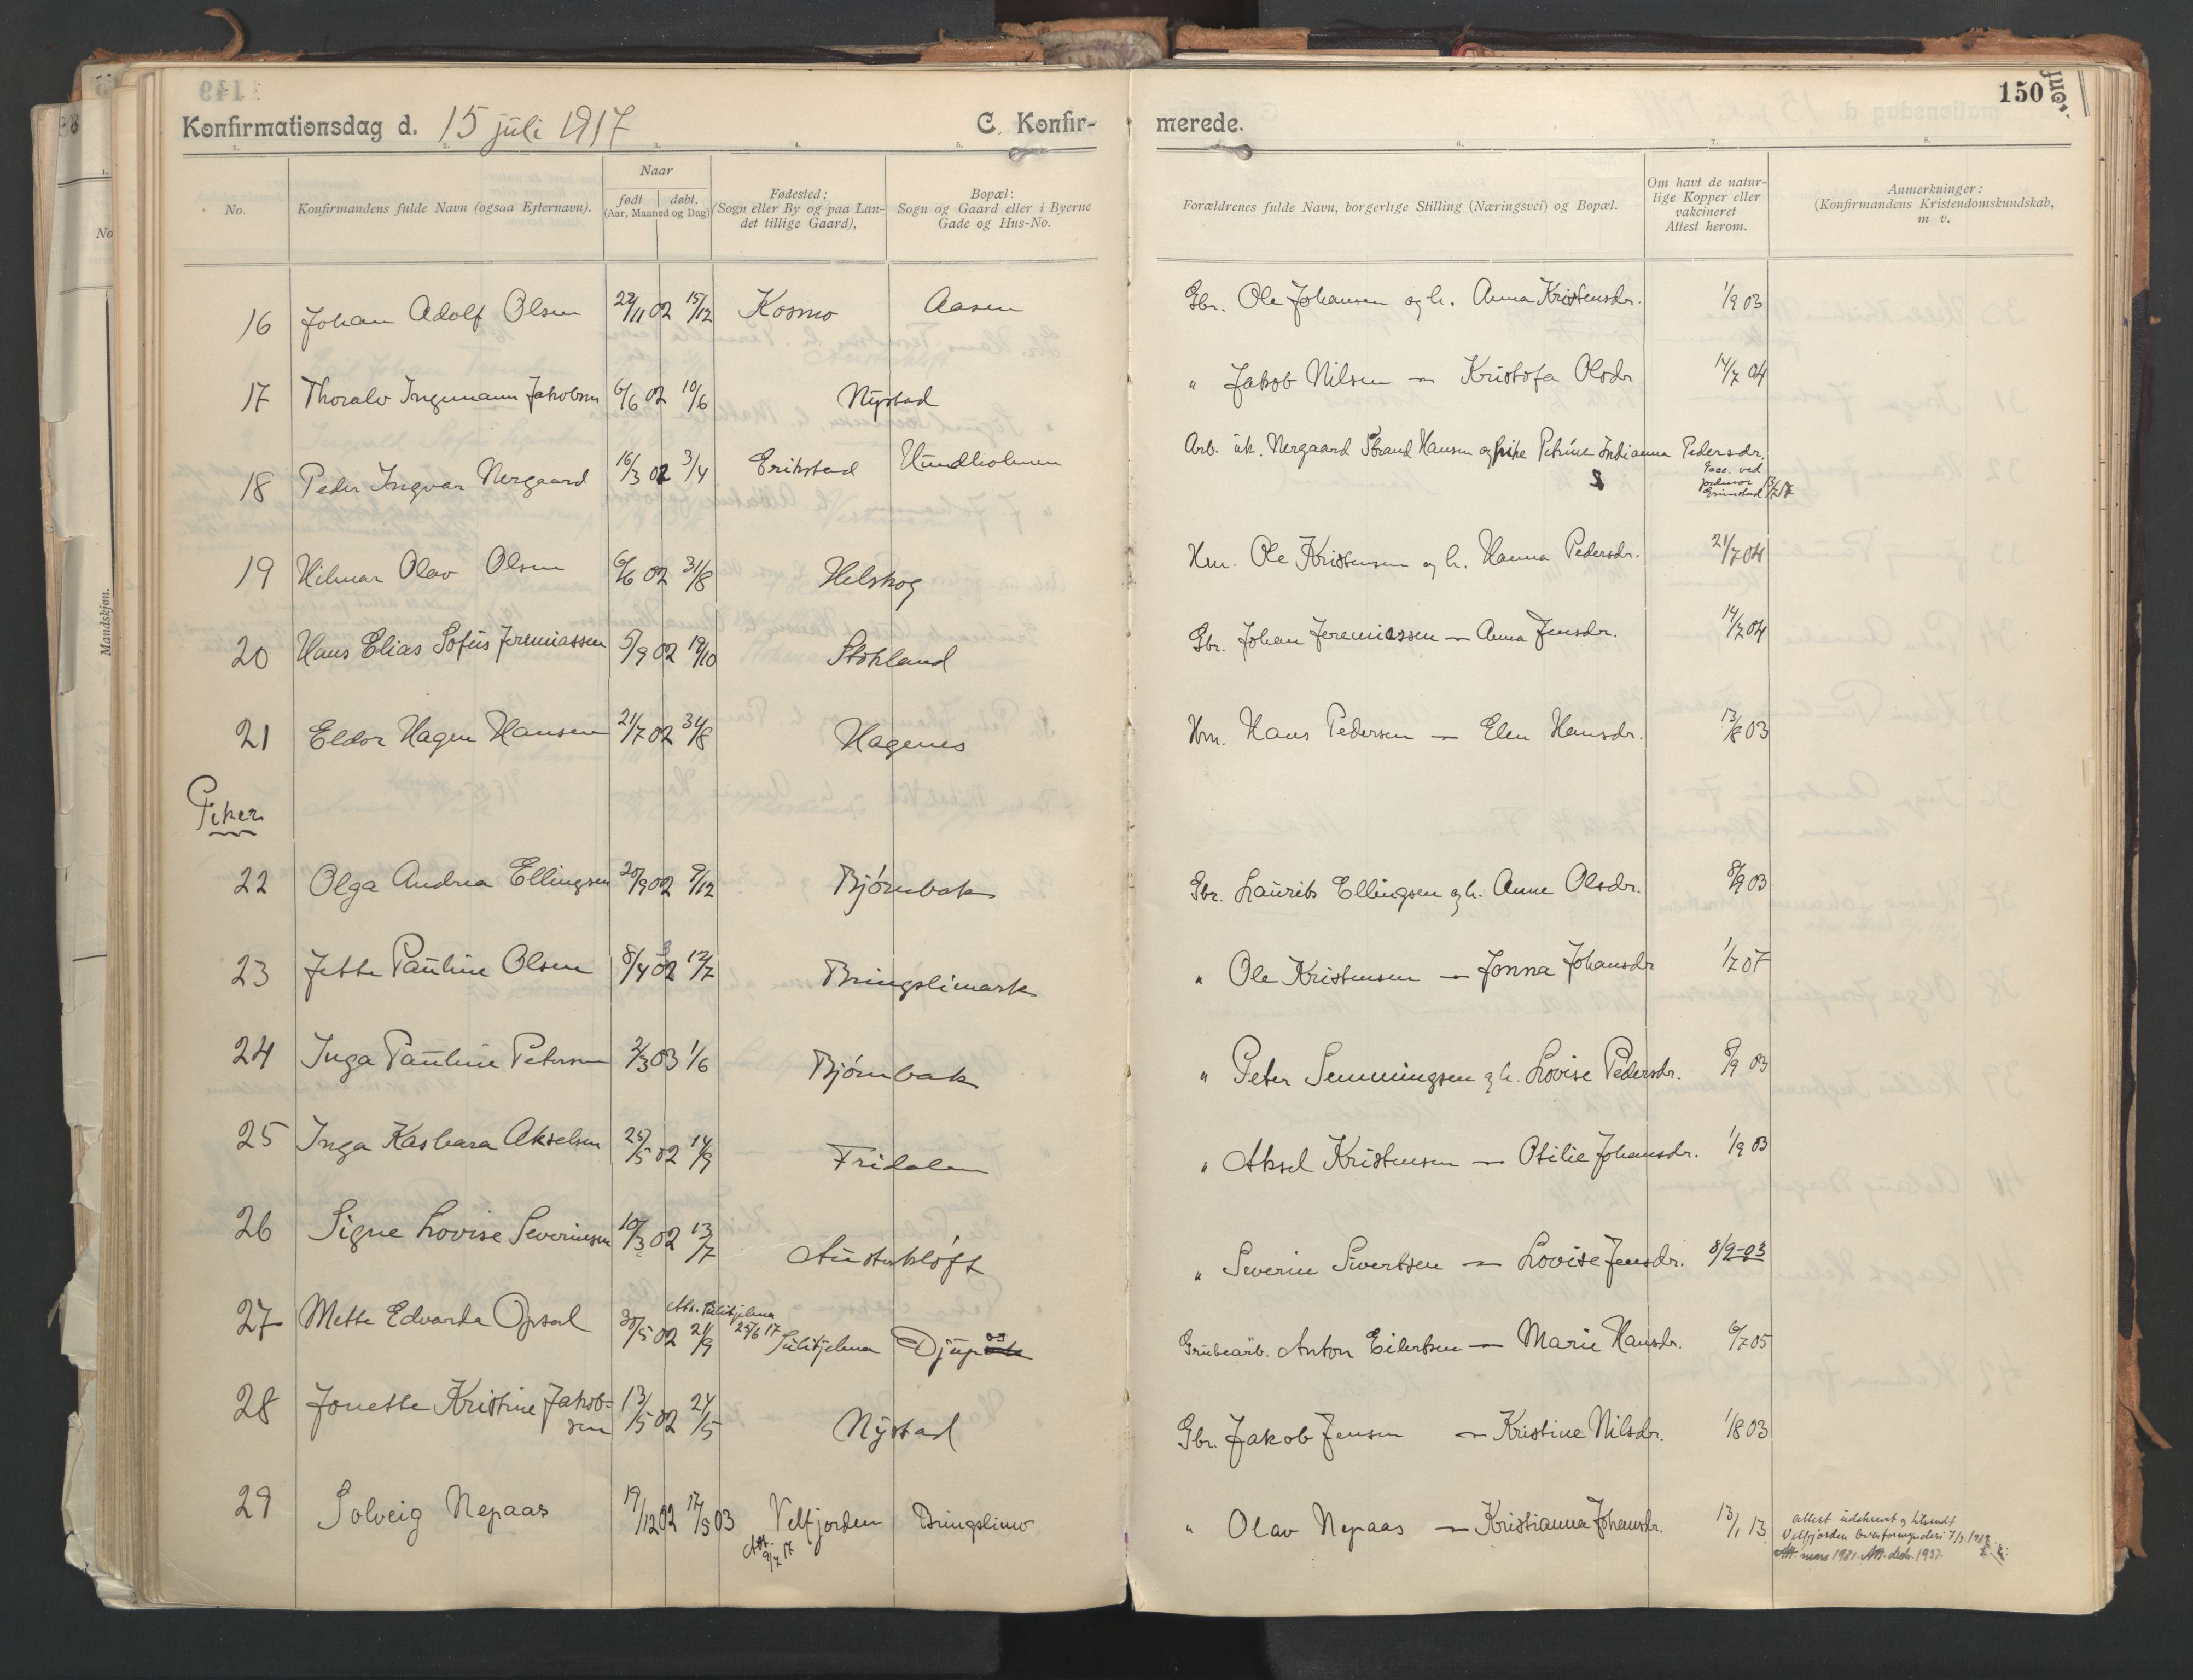 150
Konfirmationsdag d. 15 juli 1917 C. Konfir- merede.
1. 2. 3. 4. 5. 6. 7. 8.
No.
Konfirmandens fulde Navn (ogsaa Efternavn).
Naar
født døbt.
(Aar, Maaned og Dag)
Fødested:
(Sogn eller By og paa Lan-
det tillige Gaard),
Bopæl:
Sogn og Gaard eller i Byerne
Gade og Hus-No.
Forældrenes fulde Navn, borgerlige Stilling (Næringsvei) og Bopæl.
Om havt de natur-
lige Kopper eller
vakcineret
Attest herom.
Anmerkninger:
(Konfirmandens Kristendomskundskab,
m v.
Mandskjøn.
16 Johan Adolf Olsen 22/11 02 15/12 Kosmo Aasen Gbr. Ole Johansen og h. Anna Kristensdr. 1/9 03
17 Thoralv Ingemann Jakobsen 6/6 02 10/6 Nystad " Jakob Nilsen — Kristofa Olsdr 14/7 04
18 Peder Ingvar Nergaard 16/3 02 3/4 Erikstad Hundholmen Arb. uk. Nergaard Strand Hansen og pike Petrine Indianna Pedersdr.
Vacc. ved
jordmor
Grimstad 13/7 17
19 Hilmar Olav Olsen 6/6 02 31/8 Helskog Hm. Ole Kristensen og h. Hanna Pedersdr. 21/7 04
20 Hans Elias Sofus Jeremiassen 5/9 02 19/10 Stokland Gbr. Johan Jeremiassen — Anna Jensdr. 14/7 04
21 Eldor Hagen Hansen 21/7 02 31/8 Hagenes Hm. Hans Pedersen — Elen Hansdr. 13/8 03
Piker
22 Olga Andrea Ellingsen 20/9 02 9/12 Bjørnbak Gbr. Laurits Ellingsen og h. Anne Olsdr. 8/9 03
23 Jette Pauline Olsen 8/4 02 12/7 Bringslimark " Ole Kristensen — Jonna Johansdr 1/7 07
24 Inga Pauline Petersen 2/3 03 1/6 Bjørnbak " Peter Semmingsen og h. Lovise Pedersdr. 8/9 03
25 Inga Kasbara Akselsen 25/5 02 14/9 Fridalen " Aksel Kristensen — Otilie Johansdr. 1/9 03
26 Signe Lovise Severinsen 10/3 02 13/7 Austerkløft " Severin Sivertsen — Lovise Jensdr. 8/9-03
27 Mette Edvarda Opsal 30/5 02 21/9 Att. Sulitjelma 25/6 17 Sulitjelma Djupos Grubearb. Anton Eilertsen — Marie Hansdr. 6/7 05
28 Jonette Kristine Jakob-
sen 13/5 02 24/5 Nystad Gbr. Jakob Jensen — Kristine Nilsdr. 1/8 03
29 Solveig Nepaas 19/12 02 17/5 03 Velfjorden Bringslimo " Olav Nepaas — Kristianna Johansdr. 13/1 13
Att. 9/7 17
attest udskrevet og tilsendt
Velfjorden Overformynderi 7/3 1918
Att. mars 1921. Att. decbr. 1937.